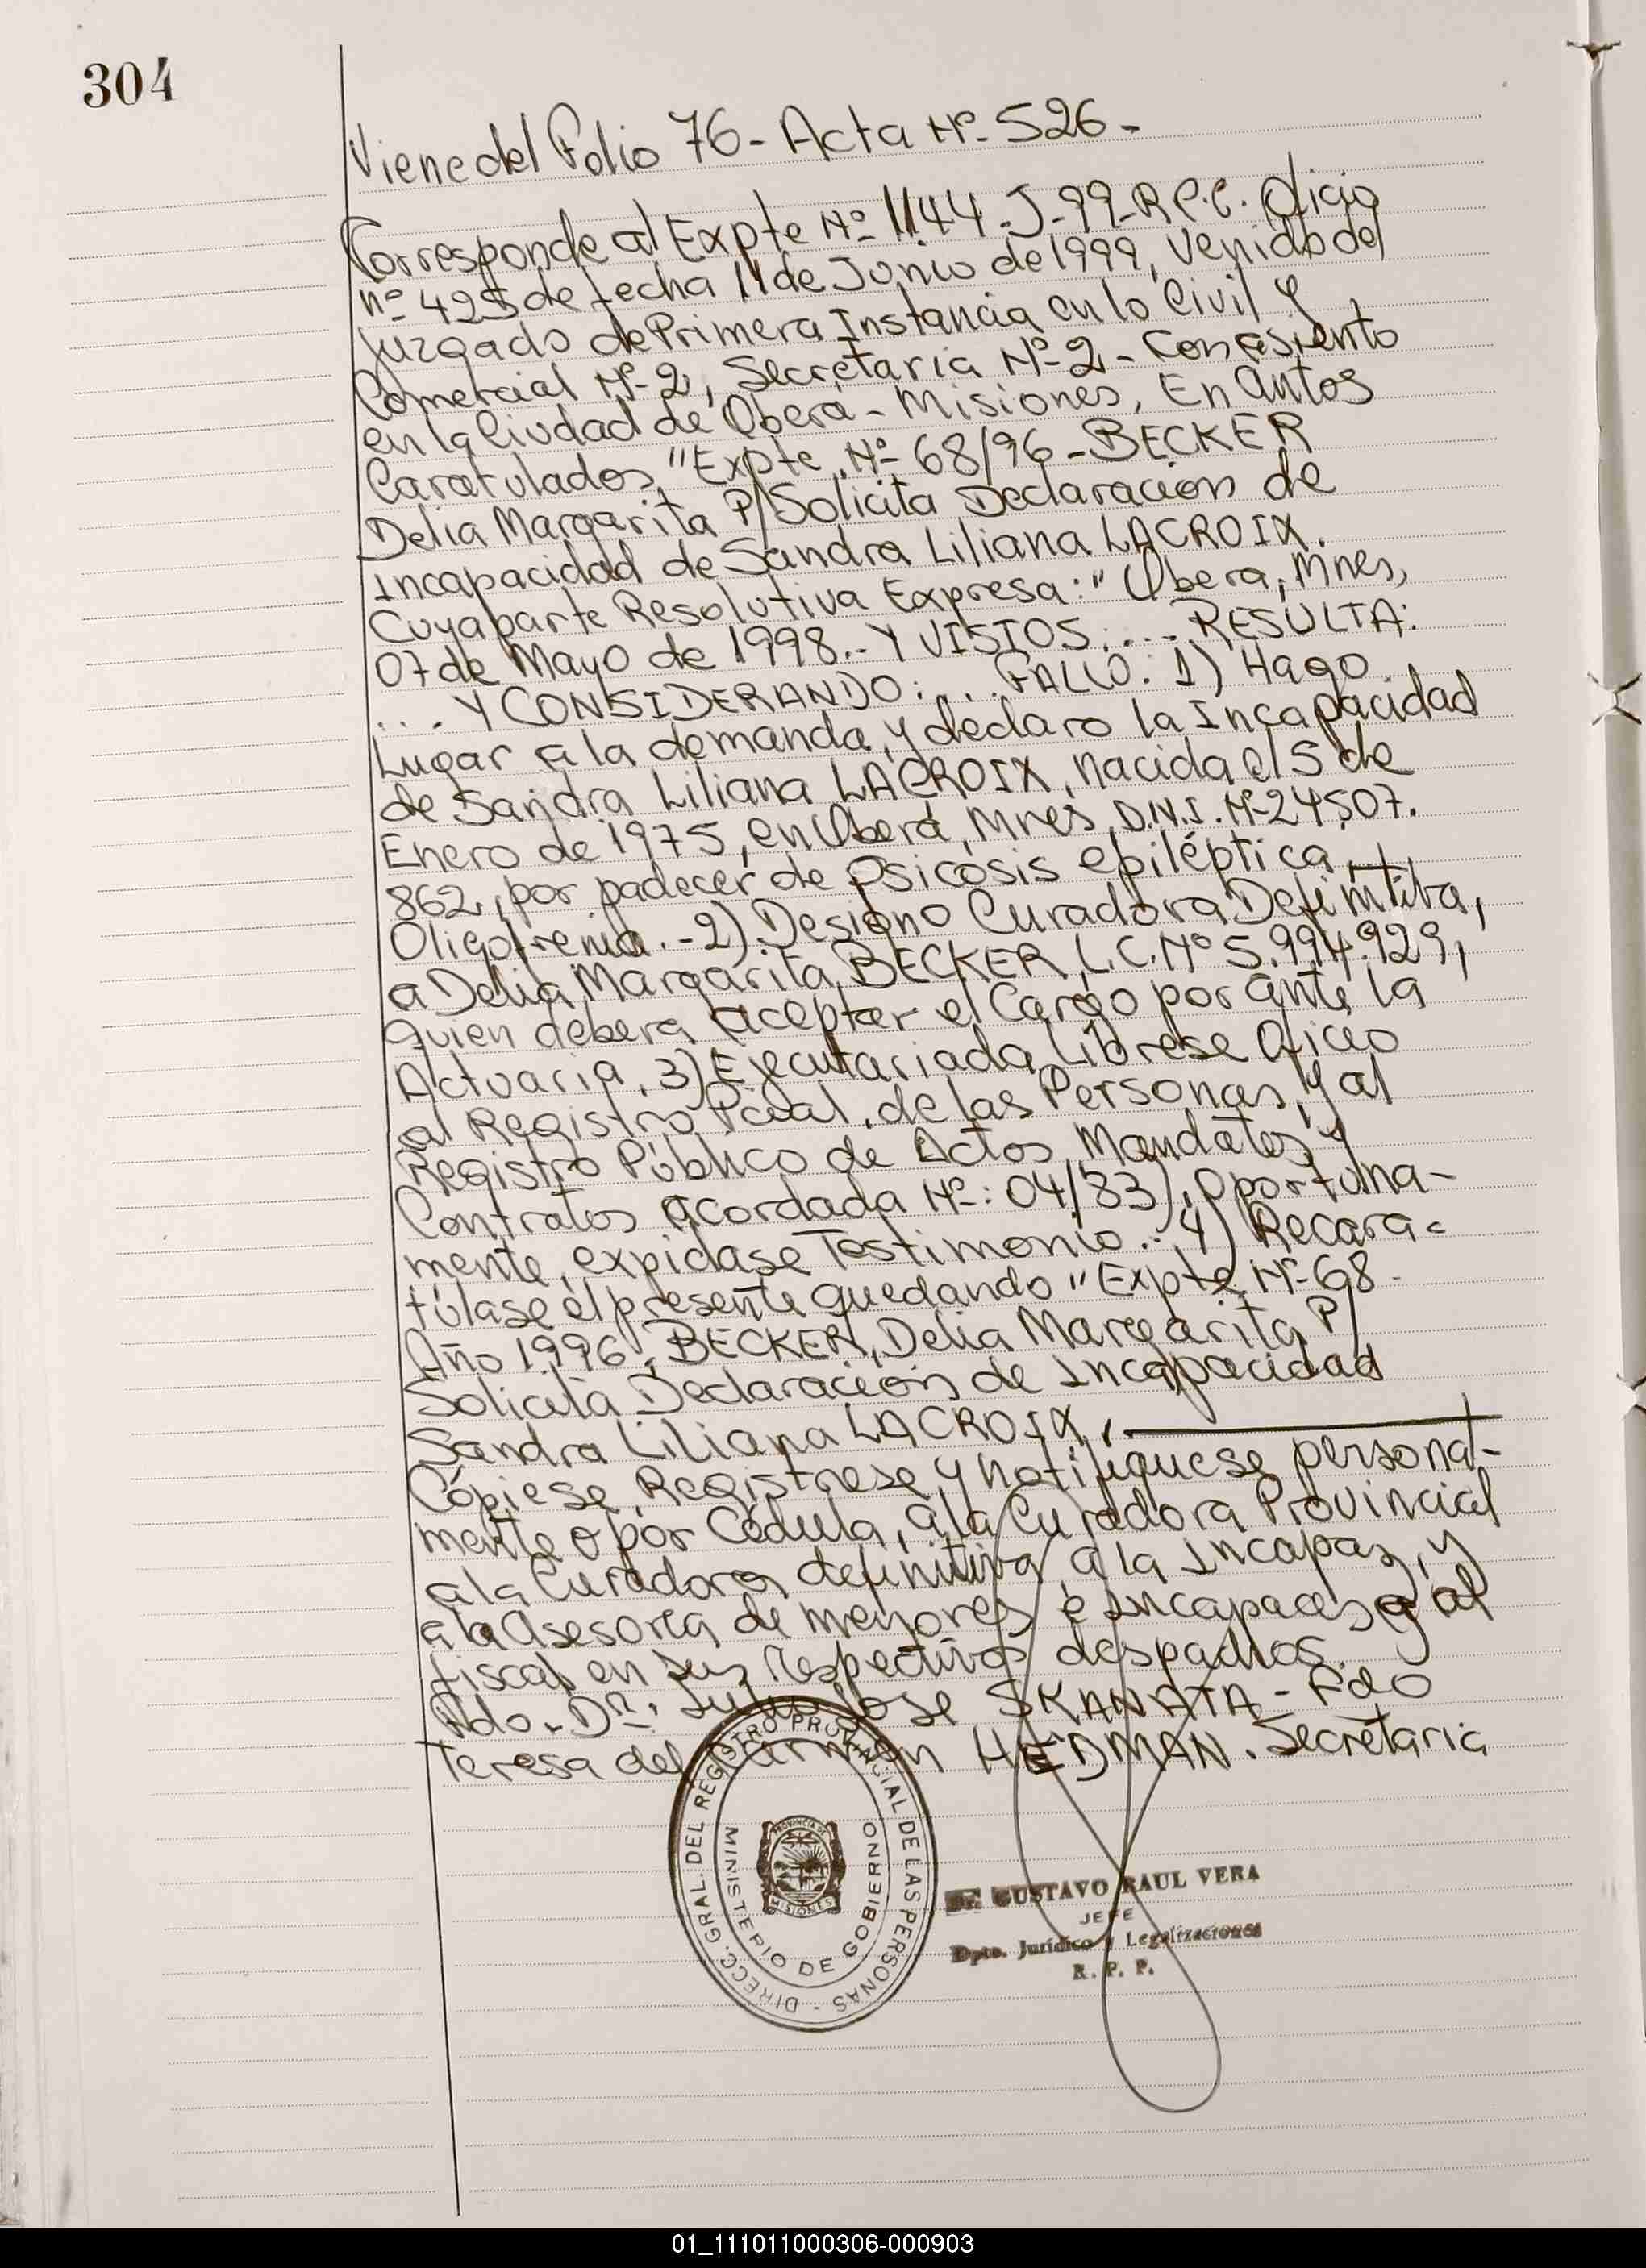 304
Viene del Folio 76 - Acta Nº - 526 -
Corresponde al Expte Nº 1144 - J - 99 - R.P.C. Oficio
nº 425 de fecha 11 de Junio de 1999, venido del
Juzgado de Primera Instancia en lo Civil y
Comercial Nº - 2, Secretaria Nº - 2 - Con asiento
en la Ciudad de Oberá - Misiones, En Autos
Caratulados, "Expte. Nº - 68/96 - BECKER
Delia Margarita P/Solicita Declaración de
Incapacidad de Sandra Liliana LACROIX.
Cuya parte Resolutiva Expresa: "Obera, Mnes,
07 de Mayo de 1998.- Y VISTOS: .... RESULTA:
.... Y CONSIDERANDO: .... FALLO: 1) Hago
Lugar a la demanda, y declaro la Incapacidad
de Sandra Liliana LACROIX, nacida el 5 de
Enero de 1975, en Oberá, Mnes, D.N.I. Nº - 24.507.
862, por padecer de Psicosis epiléptica,
Oligofrenia. - 2) Designo Curadora Definitiva,
a Delia Margarita BECKER, L.C. Nº 5.994.929,
quien debera aceptar el Cargo por ante la
Actuaria, 3) Ejecutariada, Líbrese Oficio
al Registro Pcial. de las Personas, y al
Registro Público de Actos, Mandatos y
Contratos acordada Nº: 04/83), oportuna-
mente, expidase Testimonio.- 4) Recara=
túlase el presente quedando "Expte Nº - 68 -
Año 1996, BECKER, Delia Margarita P/
Solicita Declaración de Incapacidad
Sandra Liliana LACROIX,
Cópiese, Registrese, y notifiquese personal-
mente o por Cédula, a la Curadora Provincial
a la Curadora definitiva, a la Incapaz, y
a la Asesoría de menores e Incapaces y al
fiscal en sus respectivos despachos.
Fdo. Dr. Julio Jose SKANATA - Fdo
Teresa del Carmen HEDMAN. Secretaria
DIRECC. GRAL. DEL REGISTRO PROVINCIAL DE LAS PERSONAS -
MINISTERIO DE GOBIERNO
PROVINCIA DE
MISIONES
Dr. GUSTAVO RAUL VERA
JEFE
Dpto. Jurídico y Legalizaciones
R. P. P.
01_111011000306-000903